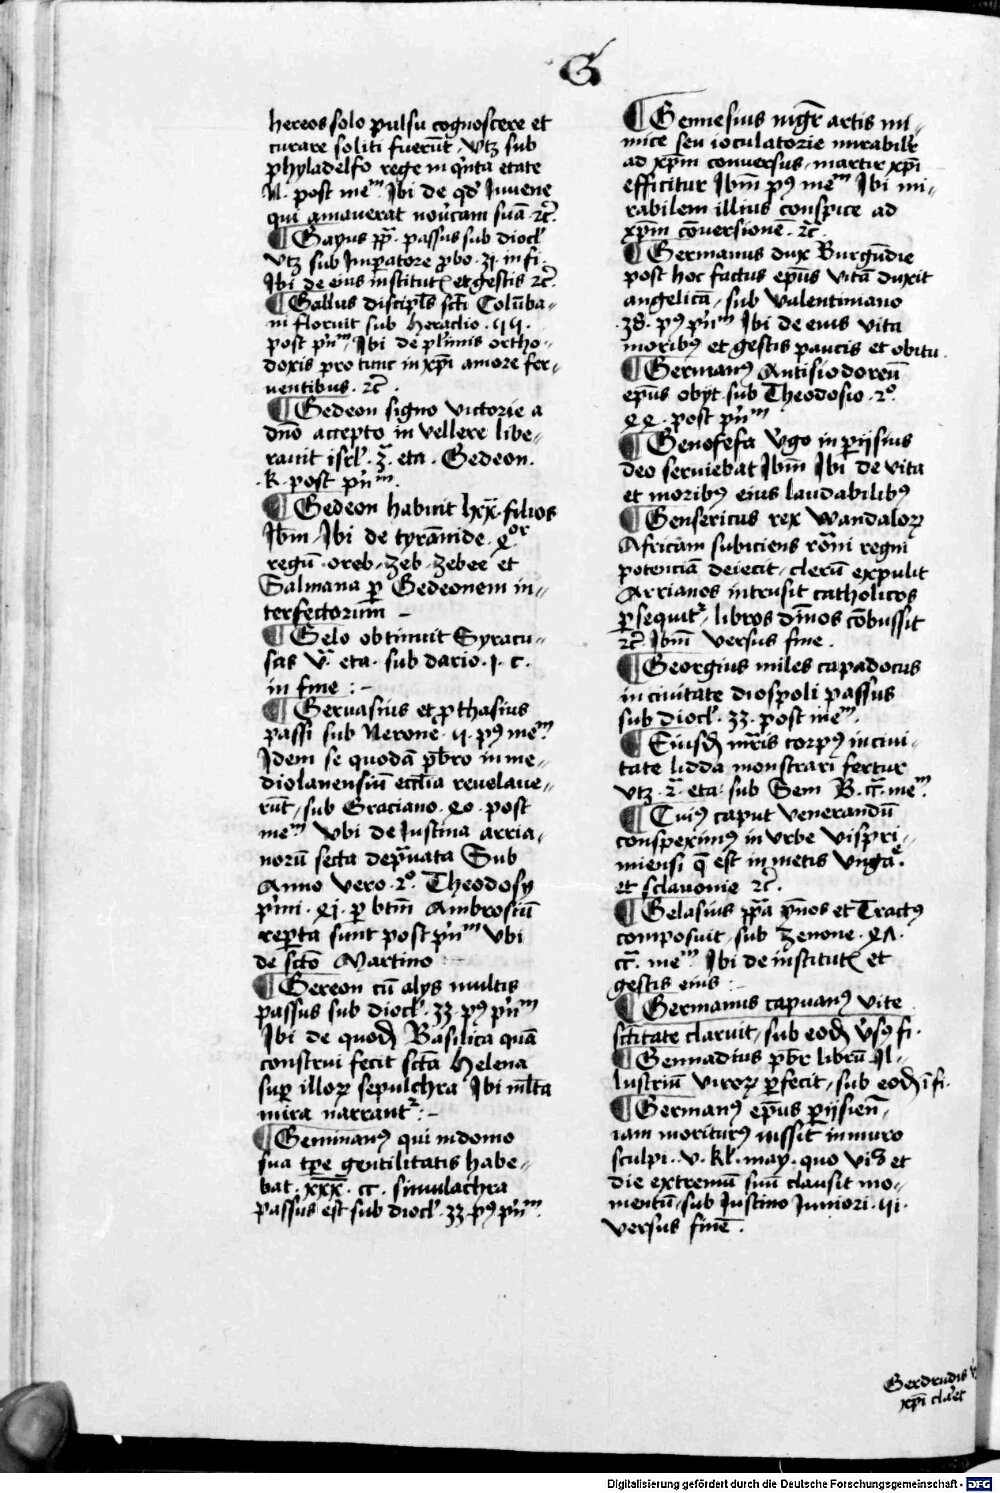 G
hereos solo pulsu cognoscere et
curare soliti fuerūt, vtz sub
phyladelfo rege in qͥnta etate
N. post meᵐ Ibi de qd̕ Iuvene
qui amauerat nou̕cam suā ⁊c̄.
¶ Gayus pp̄. passus sub diocl̕
vtz sub Impatore probo. zj. in fi.
Ibi de eius institut̕ et gestis ⁊c̄.
¶ Gallus discipl̕s sc̄ti Colūba-
ni floruit sub heraclio. ii.
post pn̄ᵐ, Ibi de pl̕imis ortho-
doxis pro tunc in xp̄i amore fer-
uentibus. ⁊c̄.
¶ Gedeon signo victorie a
dn̄o accepto in vellere libe-
rauit isrl̕. 3ᵃ. eta. Gedeon.
k. post pn̄ᵐ.
¶ Gedeon habuit lxx. filios
Ibm̄ Ibi de tyrānide. 4ᵒʳ
regū. oreb, zeb, zebee et
Salmana p̱ Gedeonem in-
terfectorum̄ -
¶ Gelo obtinuit Syracu-
sas v̄ eta. sub dario. i. c.
in fine : -
¶ Geruasius et p̱thasius
passi sub Nerone. ii. pꝰ meᵐ.
Idem se quodā pb̄ro in me-
diolanensiū eccl̄ia reuelaue-
rūt, sub Graciano. 40. post
meᵐ vbi de Iustina arria-
norū secta depͣuata Sub
Anno vero. 2ᵒ. Theodosij
pͥmi. 4j. p̱ btm̄ Ambrosiū
rep̱ta sunt post pn̄ᵐ vbi
de sc̄to Martino
¶ Gereon cū alys multis
passus sub diocl̕. 33. pꝰ pn̄ᵐ
Ibi de quodā Basilica quā
construi fecit sc̄ta Helena
sup̱ illoꝝ sepulchra Ibi ml̄ta
mira narrant̕ : -
¶ Geminianꝰ qui in domo
sua tp̄e gentilitatis habe-
bat. xxx. cc. simulachra
passus est sub diocl̕. 33. pꝰ pn̄ᵐ.
¶ Gennesius mgr̄ artis mi-
mice seu ioculatorie mirabilr̄
ad xp̄m conuersus, martir xp̄i
efficitur Ibm̄ pꝰ meᵐ Ibi mi-
rabilem illius conspice ad
xp̄m cōuersionē. ⁊c̄.
¶ Germanus dux Burgūdie
post hoc factus ep̄us vitā duxit
angelicā, sub valentiniano
38. pꝰ pn̄ᵐ Ibi de eius vita
moribꝰ et gestis paucis et obitu.
¶ Germanꝰ Antisiodoreū
ep̄us obyt sub Theodosio. 2ᵒ.
44. post pn̄ᵐ
¶ Genofefa v̕go in p̱ijsius
deo seruiebat Ibm̄ Ibi de vita
et moribꝰ eius laudabilibꝰ
¶ Gensericus rex Wandaloꝝ
Africam subiciens rōni regni
potenciā deiecit, clerū expulit
Arrianos intrusit catholicos
p̱sequit̕, libros diīnos cōbussit
⁊c̄ Ibm̄ versus fine.
¶ Georgius miles capadocus
in ciuitate diospoli passus
sub diocl̕. 33. post meᵐ.
¶ Eiusdē mr̄is corpꝰ in ciui-
tate lidda monstrari fertur
vtz. 2ᵃ. eta. sub Sem B. cc̄. meᵐ.
¶ Cuiꝰ caput venerandū
conspeximꝰ in vrbe vispri-
miensi q̄ est in metis vngͣe
et sclauonie ⁊c̄.
¶ Gelasius pp̄a ymnos et Tractꝰ
composuit, sub zenone. 4Λ.
cc̄. meᵐ. Ibi de institut̕ et
gestis eius : -
¶ Germanus capuanꝰ vite
sc̄titate claruit, sub eodē v̕sꝰ fi.
¶ Gennadius pb̄r librū Il-
lustriū viroꝝ p̱fecit, sub eodē ī fi.
¶ Germanꝰ ep̄us p̱ijsien̄,
iam moriturꝰ iussit in muro
sculpi. v. kl̕. may. quo vi3 et
die extremū suū clausit mo-
mentū, sub Iustino Iuniori. iii.
versus finē.
Gerdrudis v̕
xp̄i claret
Digitalisierung gefördert durch die Deutsche Forschungsgemeinschaft - DFG